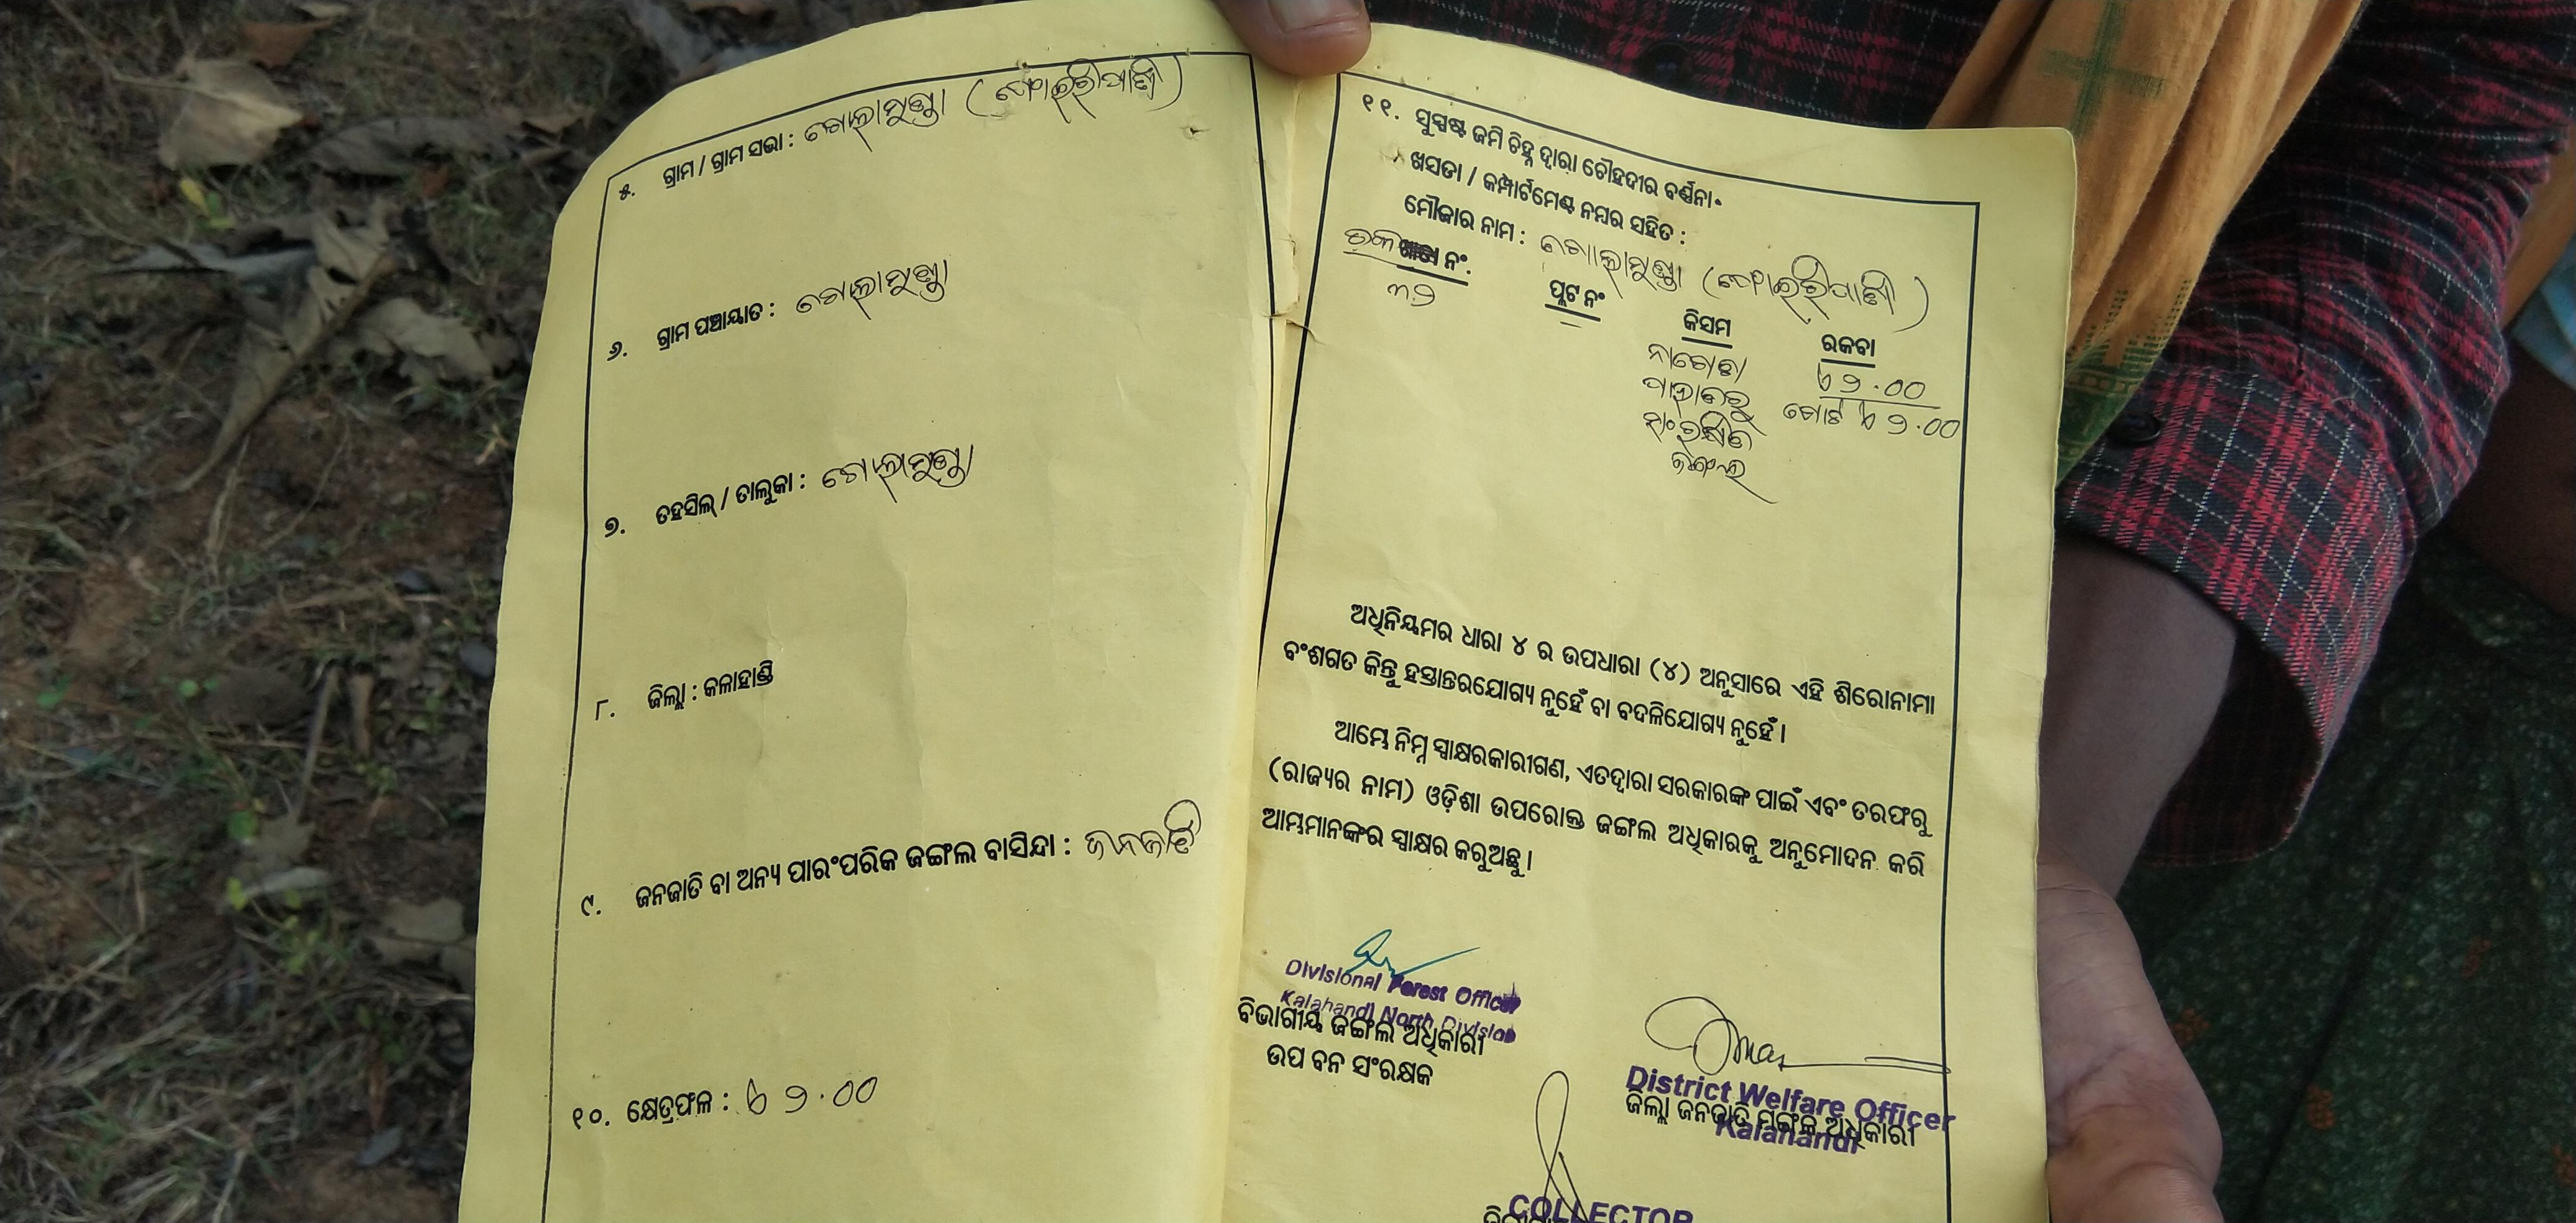 ୫. ଗ୍ରାମ / ଗ୍ରାମ ସଭା : ଗୋଲାମୁଣ୍ଡା
୬. ଗ୍ରାମ ପଞ୍ଚାୟାତ : ଗୋଲାମୁଣ୍ଡା
୭. ତହସିଲ୍ / ତାଲୁକା : ଗୋଲାମୁଣ୍ଡା
୮. ଜିଲ୍ଲା : କଳାହାଣ୍ଡି
୯. ଜନଜାତି ବା ଅନ୍ୟ ପାରଂପରିକ ଜଙ୍ଗଲ ବାସିନ୍ଦା : ଜନଜାତି
୧୦. କ୍ଷେତ୍ରଫଳ : ୭ ୨.୦୦
୧୧. ସୁସ୍ପଷ୍ଟ ଜମି ଚିହ୍ନ ଦ୍ୱାରା ଚୌହଦୀର ବର୍ଣ୍ଣନା
ଖସଡା / କମ୍ପାର୍ଟମେଣ୍ଟ ନମ୍ବର ସହିତ :
ମୌଜାର ନାମ : ଗୋଲାମୁଣ୍ଡା
ନଂ. ପ୍ଲଟ ନଂ କିସମ ରକବା
୩୨ —
ସଂରକ୍ଷିତ
ଜଙ୍ଗଲ
ଅଧିନିୟମର ଧାରା ୪ ର ଉପଧାରା (୪) ଅନୁସାରେ ଏହି ଶିରୋନାମା
ବଂଶଗତ କିନ୍ତୁ ହସ୍ତାନ୍ତରଯୋଗ୍ୟ ନୁହେଁ ବା ବଦଳିଯୋଗ୍ୟ ନୁହେଁ ।
ଆମ୍ଭେ ନିମ୍ନ ସ୍ୱାକ୍ଷରକାରୀଗଣ, ଏତଦ୍ୱାରା ସରକାରଙ୍କ ପାଇଁ ଏବଂ ତରଫରୁ
(ରାଜ୍ୟର ନାମ) ଓଡ଼ିଶା ଉପରୋକ୍ତ ଜଙ୍ଗଲ ଅଧିକାରକୁ ଅନୁମୋଦନ କରି
ଆମ୍ଭମାନଙ୍କର ସ୍ୱାକ୍ଷର କରୁଅଛୁ ।
Divisional Forest Officer
Kalahandi North Division
ବିଭାଗୀୟ ଜଙ୍ଗଲ ଅଧିକାରୀ
ଉପ ବନ ସଂରକ୍ଷକ
District Welfare Officer
ଜିଲ୍ଲା ଜନଜାତି ମଙ୍ଗଳ ଅଧିକାରୀ
Kalahandi
COLLECTOR